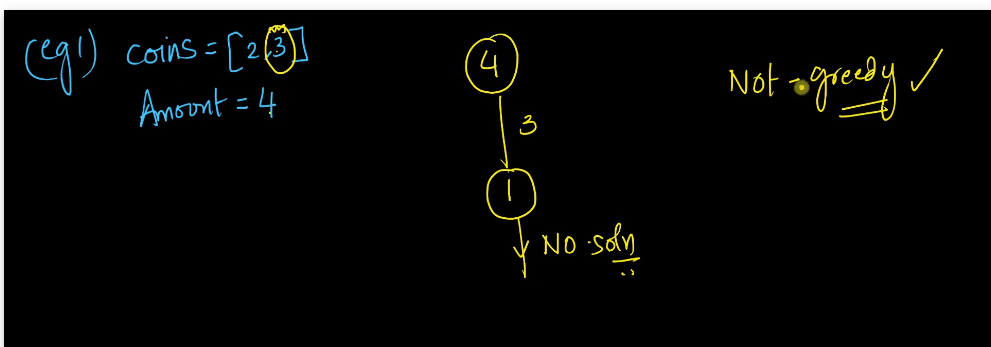 (eg1) coins = [2,3]
Amount = 4
4
3
1
NO soln
Not - greedy ✓